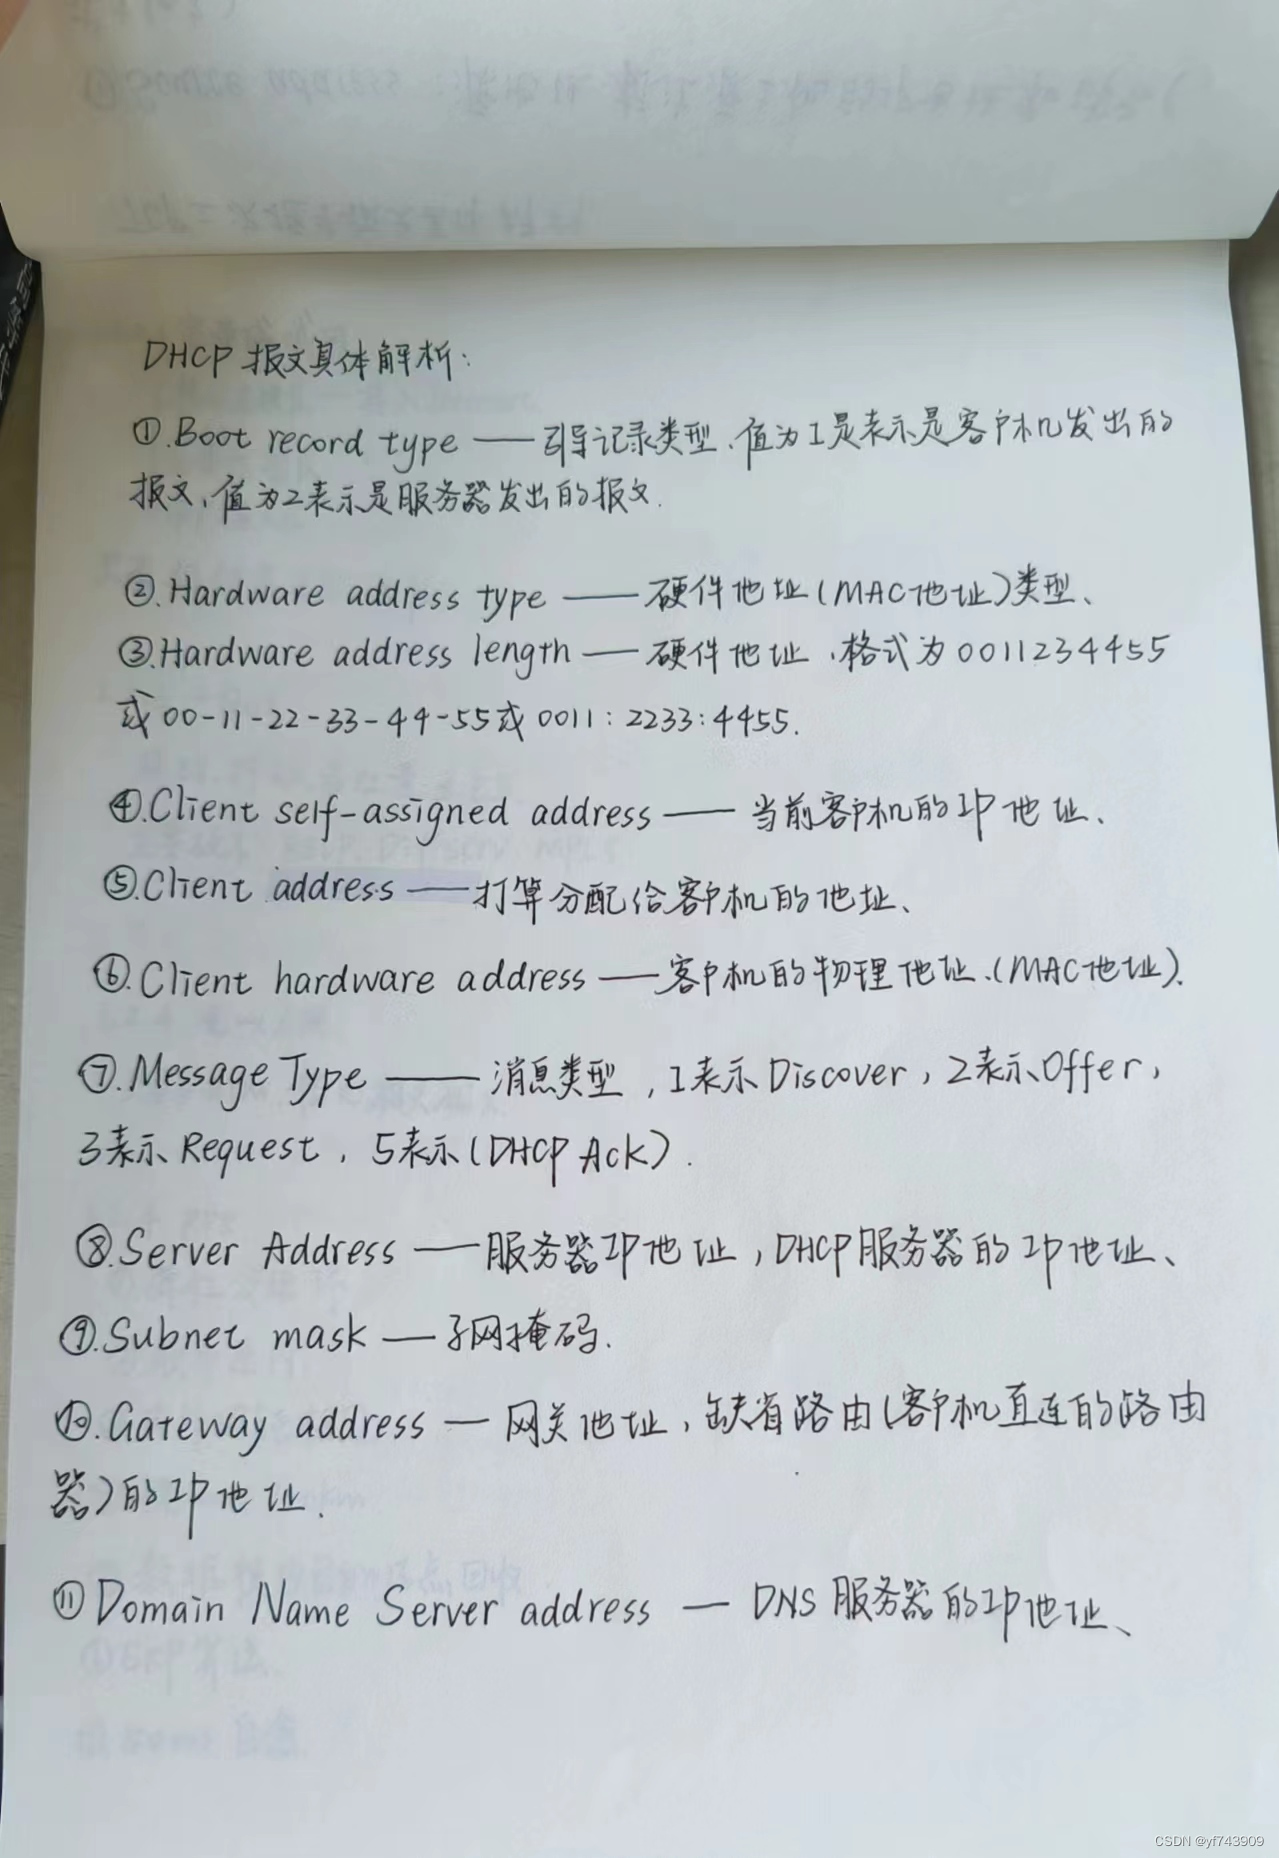 DHCP 报文具体解析：
①.Boot record type —— 引导记录类型、值为1是表示是客户机发出的
报文、值为2表示是服务器发出的报文.
②.Hardware address type —— 硬件地址(MAC地址)类型、
③.Hardware address length —— 硬件地址、格式为0011234455
或00-11-22-33-44-55或0011:2233:4455.
④.Client self-assigned address —— 当前客户机的IP地址、
⑤.Client address —— 打算分配给客户机的地址、
⑥.Client hardware address —— 客户机的物理地址.(MAC地址).
⑦.Message Type —— 消息类型，1表示Discover，2表示Offer，
3表示Request，5表示(DHCP Ack).
⑧.Server Address —— 服务器IP地址，DHCP服务器的IP地址、
⑨.Subnet mask — 子网掩码.
⑩.Gateway address — 网关地址，缺省路由(客户机直连的路由
器)的IP地址.
⑪Domain Name Server address — DNS服务器的IP地址、
CSDN @yf743909